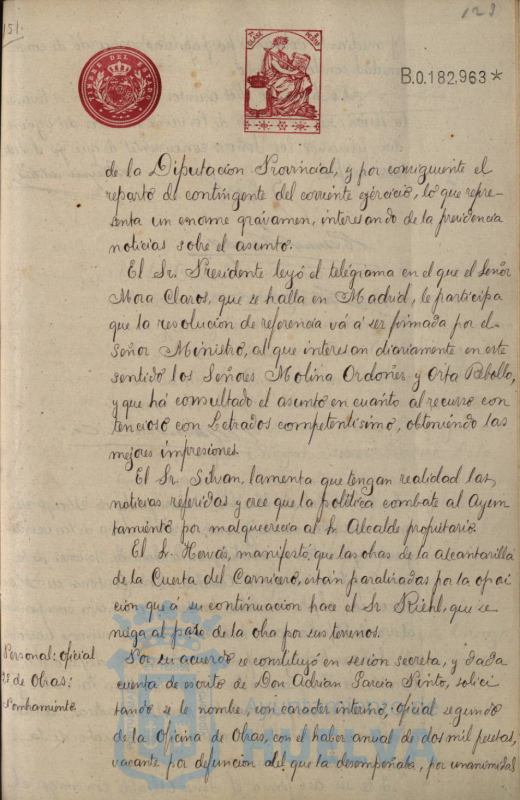 151.
123
TIMBRE DEL ESTADO
B.0.182,963*
de la Diputacion Provincial, y por consiguiente el
reparto de contingente del corriente ejercicio, lo que repre-
senta un enorme gravamen, interesando de la presidencia
noticias sobre el asunto.
El Sr. Presidente leyó el telégrama en el que el Señor
Mora Claros, que se halla en Madrid, le participa
que la resolucion de referencia vá á ser firmada por el
Señor Ministro, al que interesan diariamente en este
sentido los Señores Molina Ordoñez y Orta Rebollo,
y que há consultado el asunto en cuanto al recurso con
tencioso con Letrados competentisimo, obteniendo las
mejores impresiones.
El Sr. Silvan, lamenta que tengan realidad las
noticias referidas y cree que la política combate al Ayun
tamiento por malquerecia al Sr. Alcalde propietario.
El Sr. Hervas, manifestó, que las obras de la alcantarilla
de la Cuesta del Carnicero, están paralizadas por la oposi
cion que á su continuacion hace el Sr. Riehl, que se
niega al paso de la obra por sus terrenos.
Personal: Oficial
2º de Obras:
Nombramiento
Por su acuerdo se constituyó en sesión secreta, y dada
cuenta de escrito de Don Adrian Garcia Pinto, solici
tando se le nombre, con caracter interino, oficial segundo
de la Oficina de Obras, con el haber anual de dos mil pesetas,
vacante por defuncion del que la desempeñaba, por unanimidad
AYUNTAMIENTO DE
HUELVA